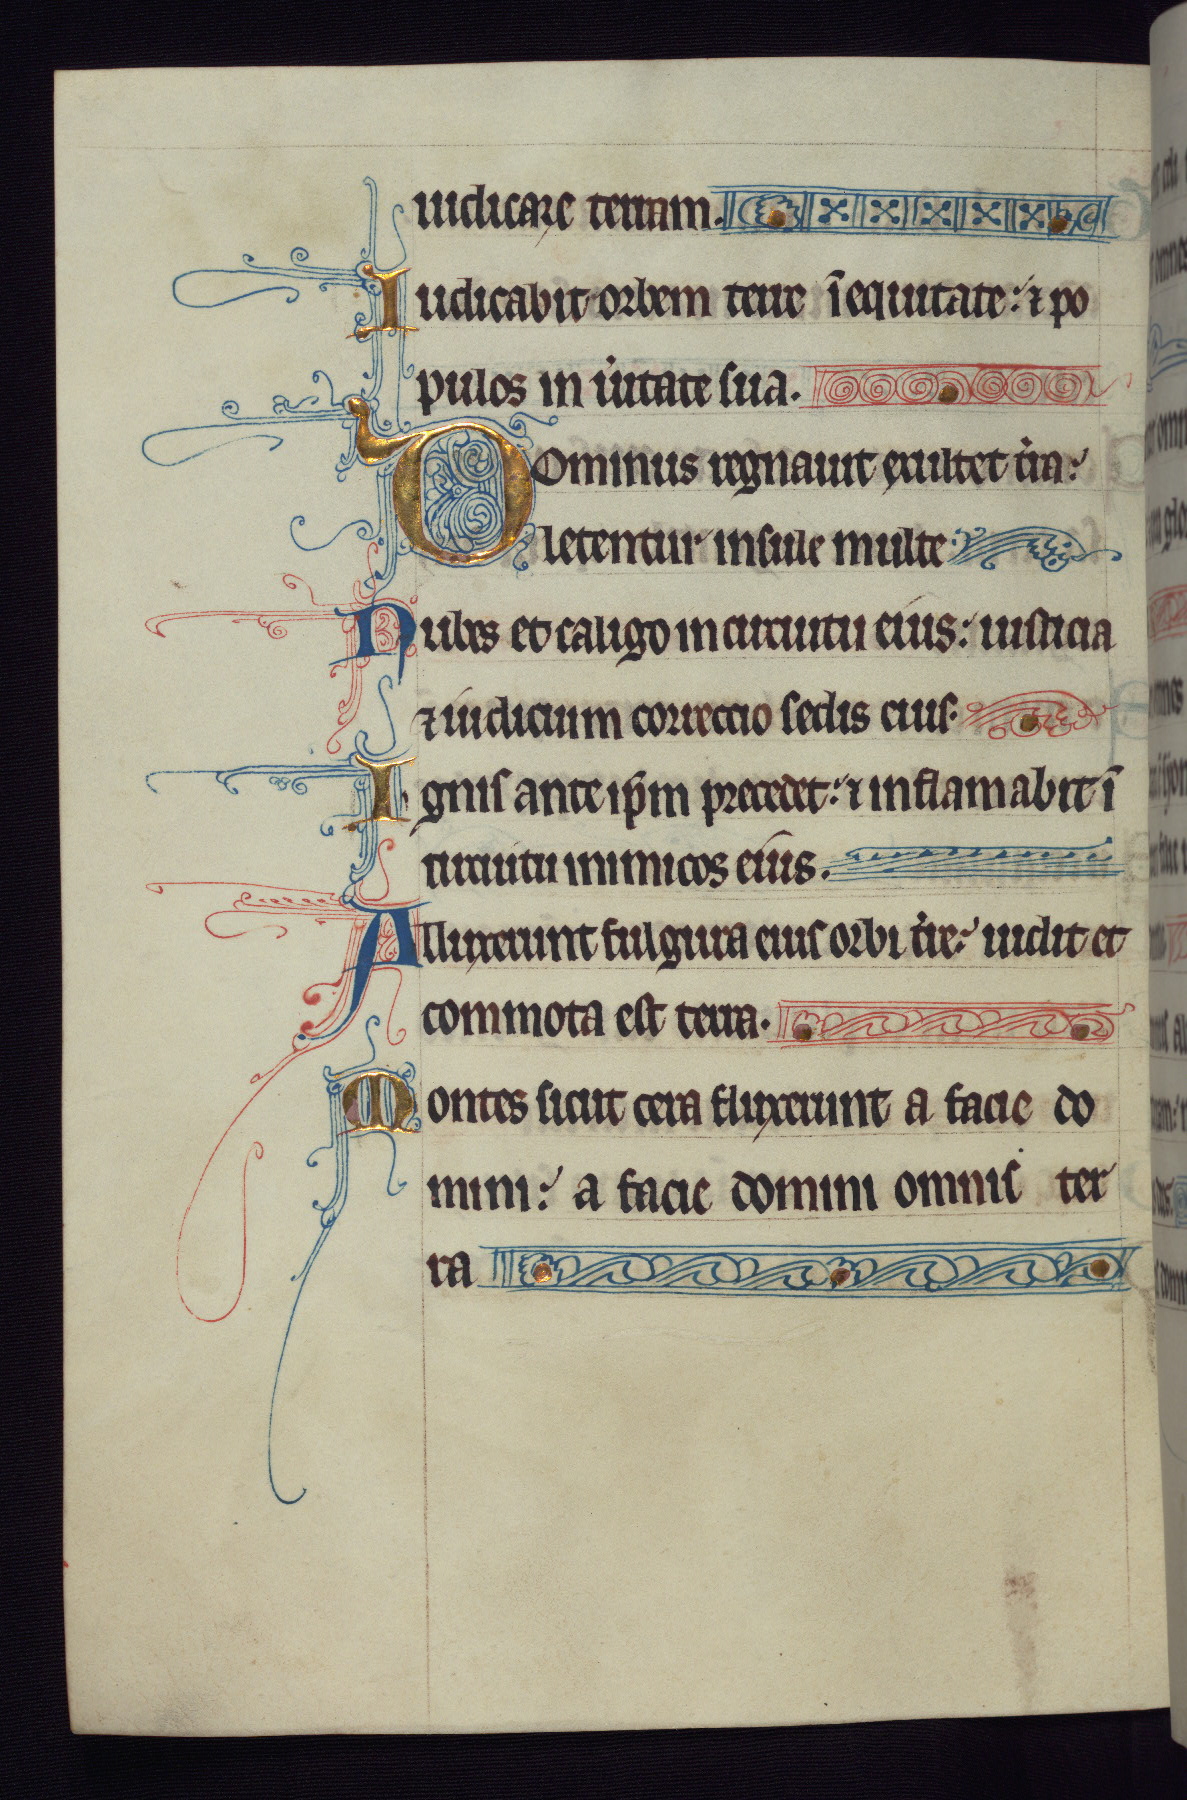 iudicare terram.
Iudicabit orbem terre ī equitate: ⁊ po
pulos in u̍itate sua.
Dominus regnauit exultet t̍ra:
letentur insule multe.
Nubes et caligo in circuitu eius: iusticia
⁊ iudicium correccio sedis eius.
Ignis ante ip̄m precedet: ⁊ inflamabit ī
circuitu inimicos eius.
Alluxerunt fulgura eius orbi t̍re: uidit et
commota est terra.
Montes sicut cera fluxerunt a facie do
mini: a facie domini omnis ter
ra